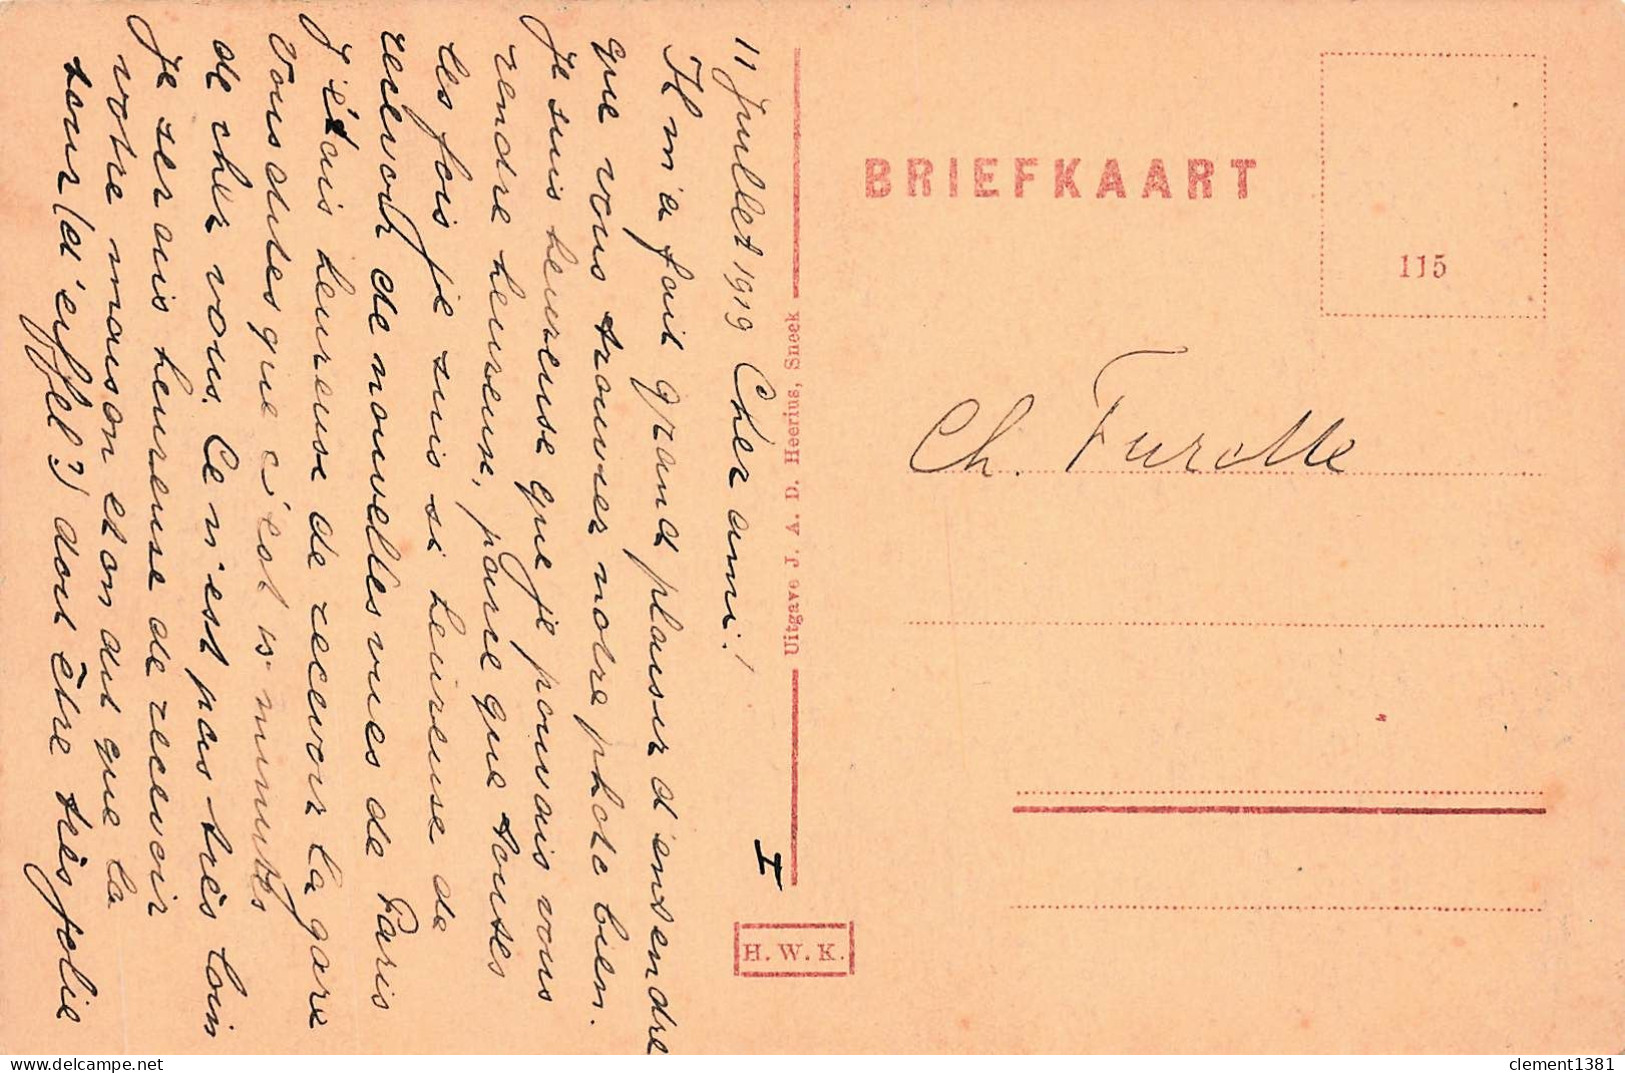 11 Juillet 1919 Cher ami!
Il m'a fait grand plaisir d'entendre
que vous trouver notre photo bien.
Je suis heureuse que je pouvais vous
rendre heureux, parce que toutes
les fois je suis si heureuse de
recevoir de nouvelles vues de Paris
J'étais heureuse de recevoir la gare
Vous dites que c'est 15 minutes
de cher vous. Ce n'est pas très loin
Je serais heureuse de recevoir
votre maison et on dit que la
tour (d'eiffel?) doit être très jolie
I
Uitgave J. A. D. Heerius, Sneek
H. W. K.
BRIEFKAART
115
Ch. Furolle
clement1381